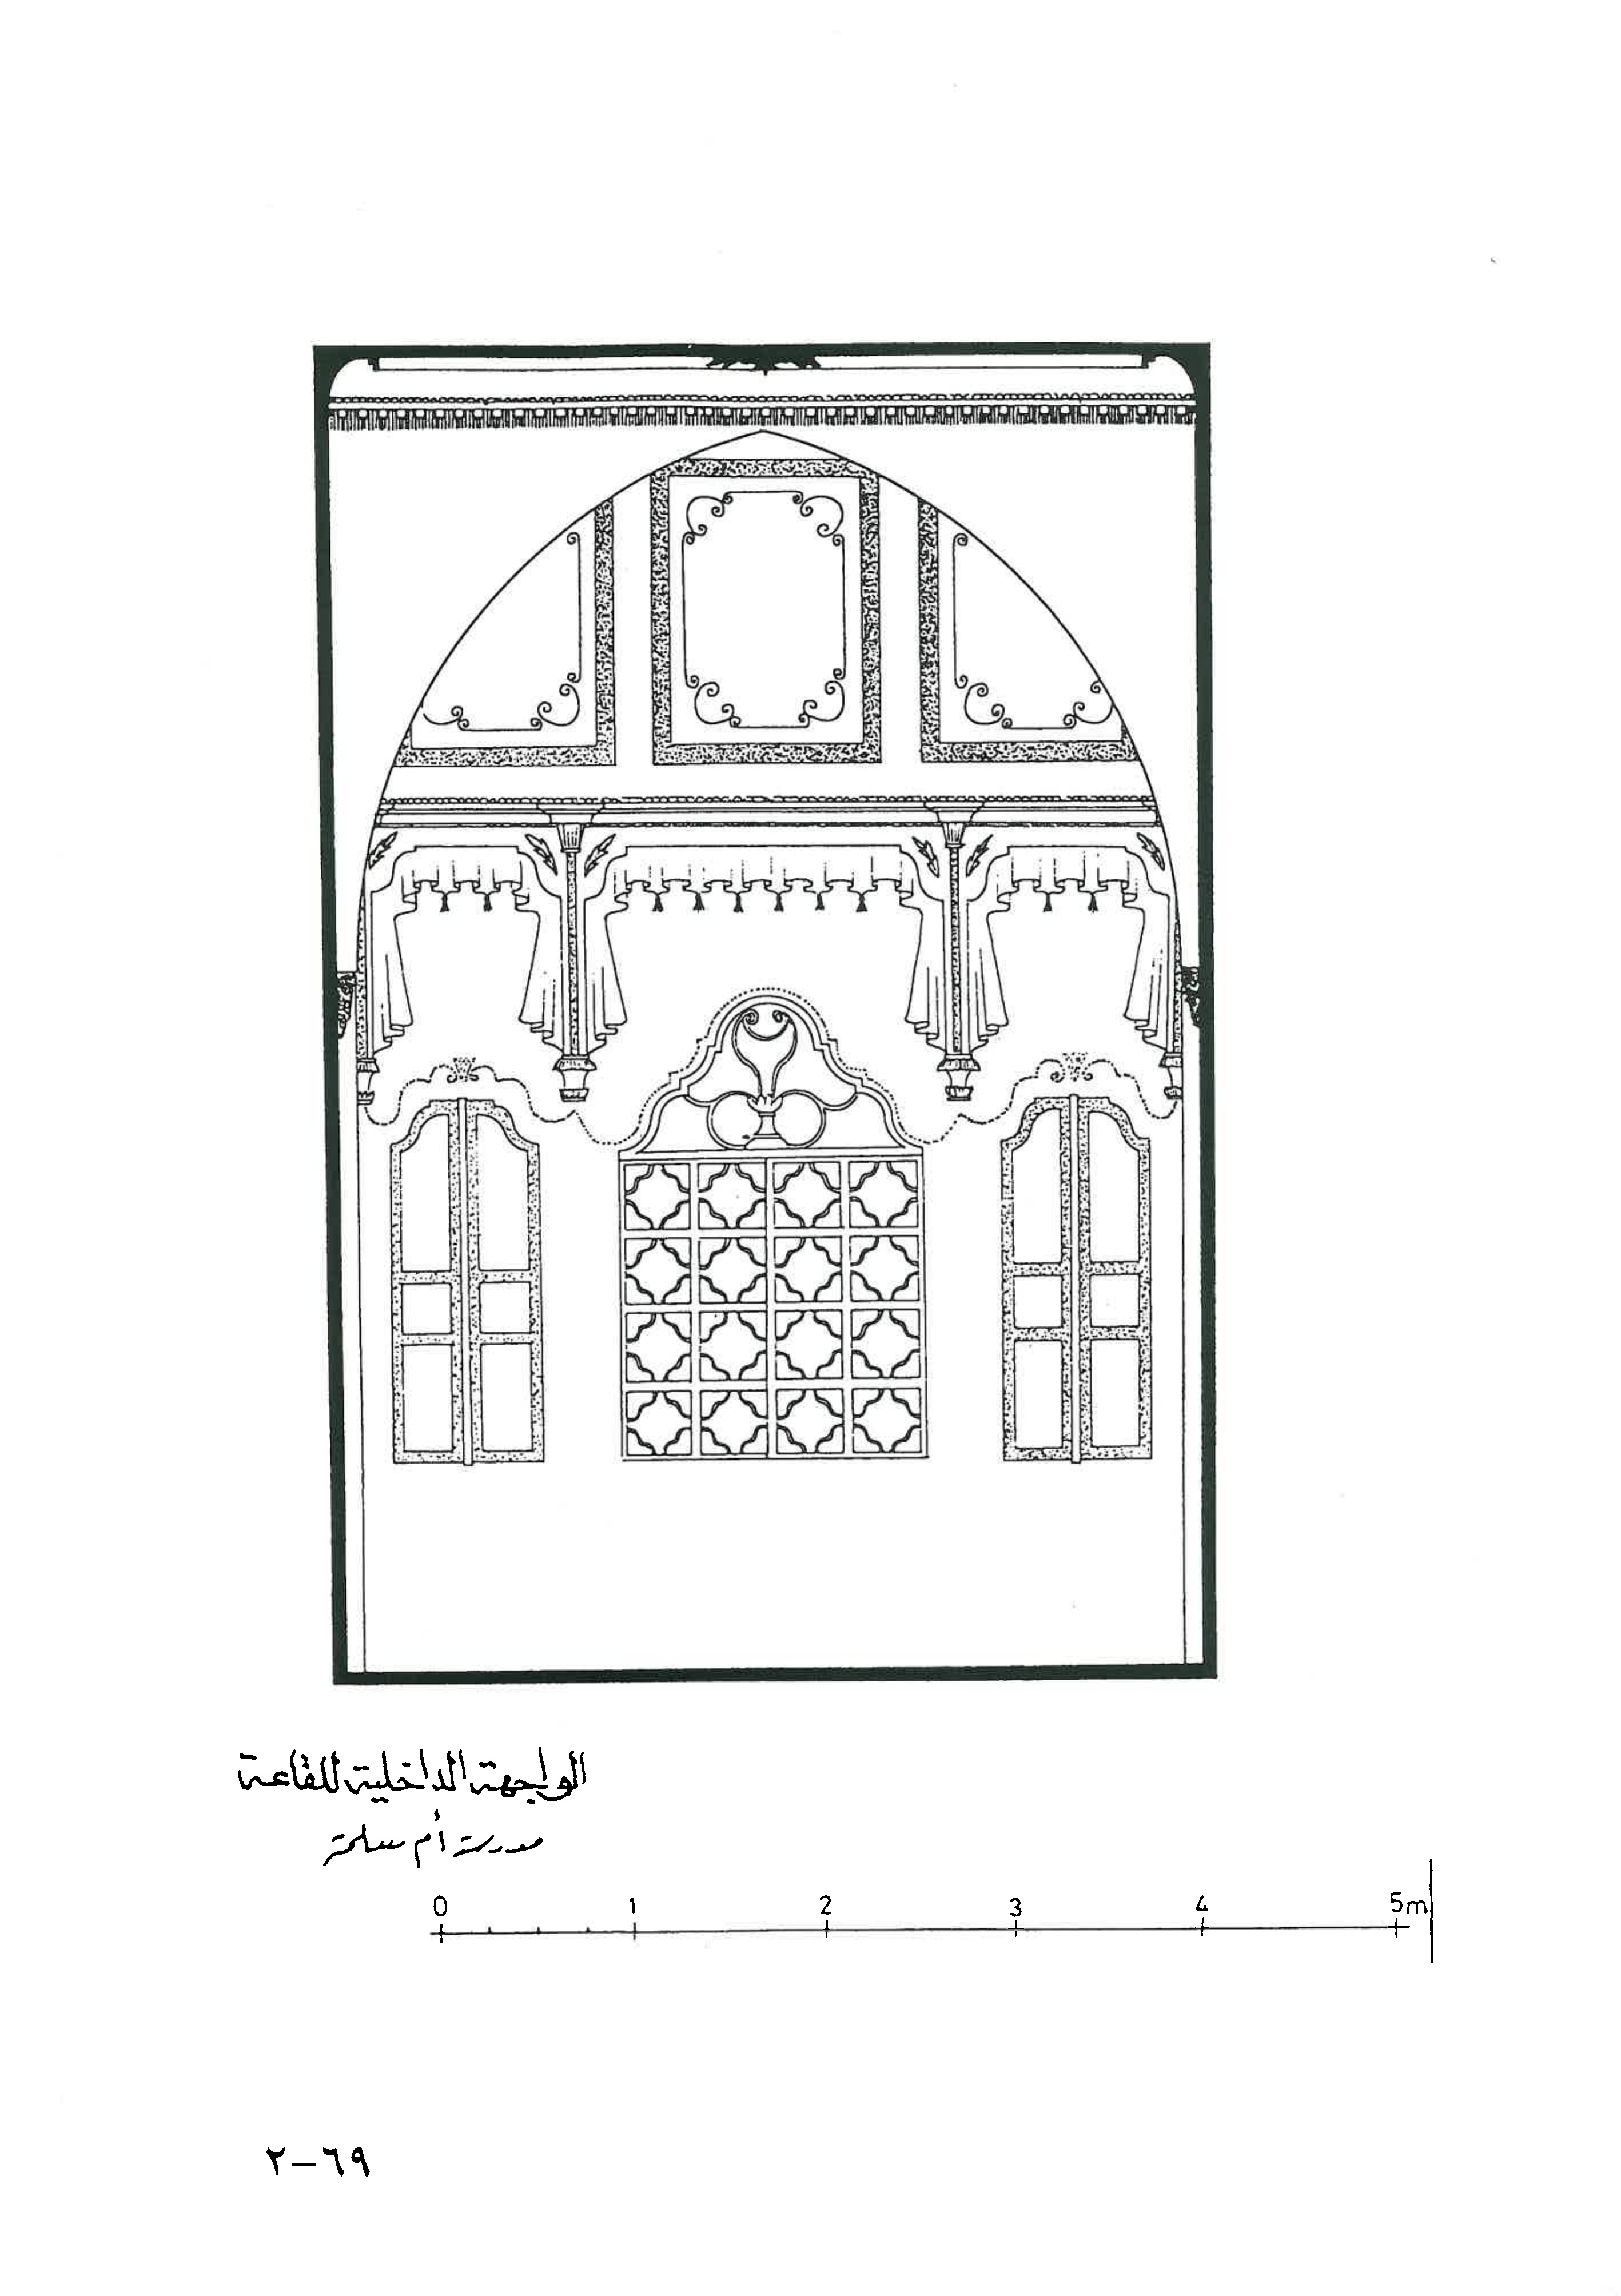 الواجهة الداخلية للقاعة
مدرسة أم سلمة
0 1 2 3 4 5m
٢-٦٩